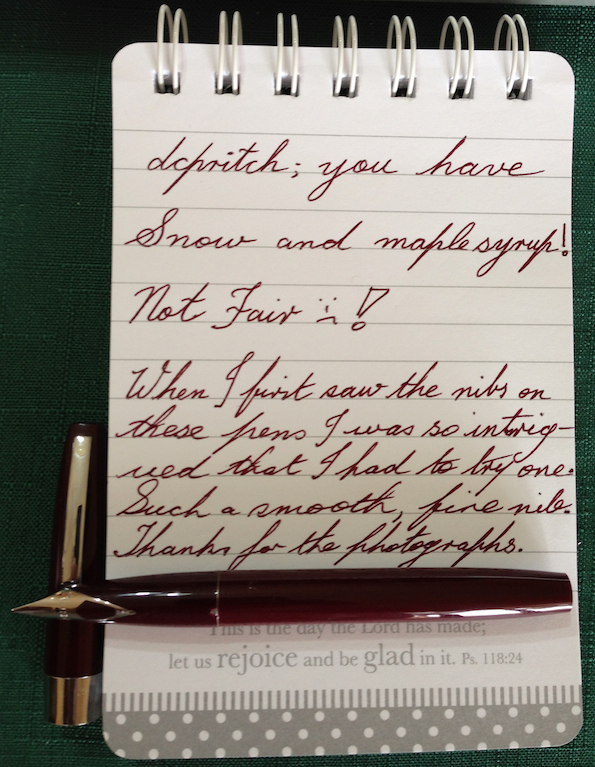 dcpritch; you have
Snow and maple syrup!
Not Fair :( !
When I first saw the nibs on
these pens I was so intrig-
ued that I had to try one.
Such a smooth, fine nib.
Thanks for the photographs.
This is the day the Lord has made;
let us rejoice and be glad in it. Ps. 118:24